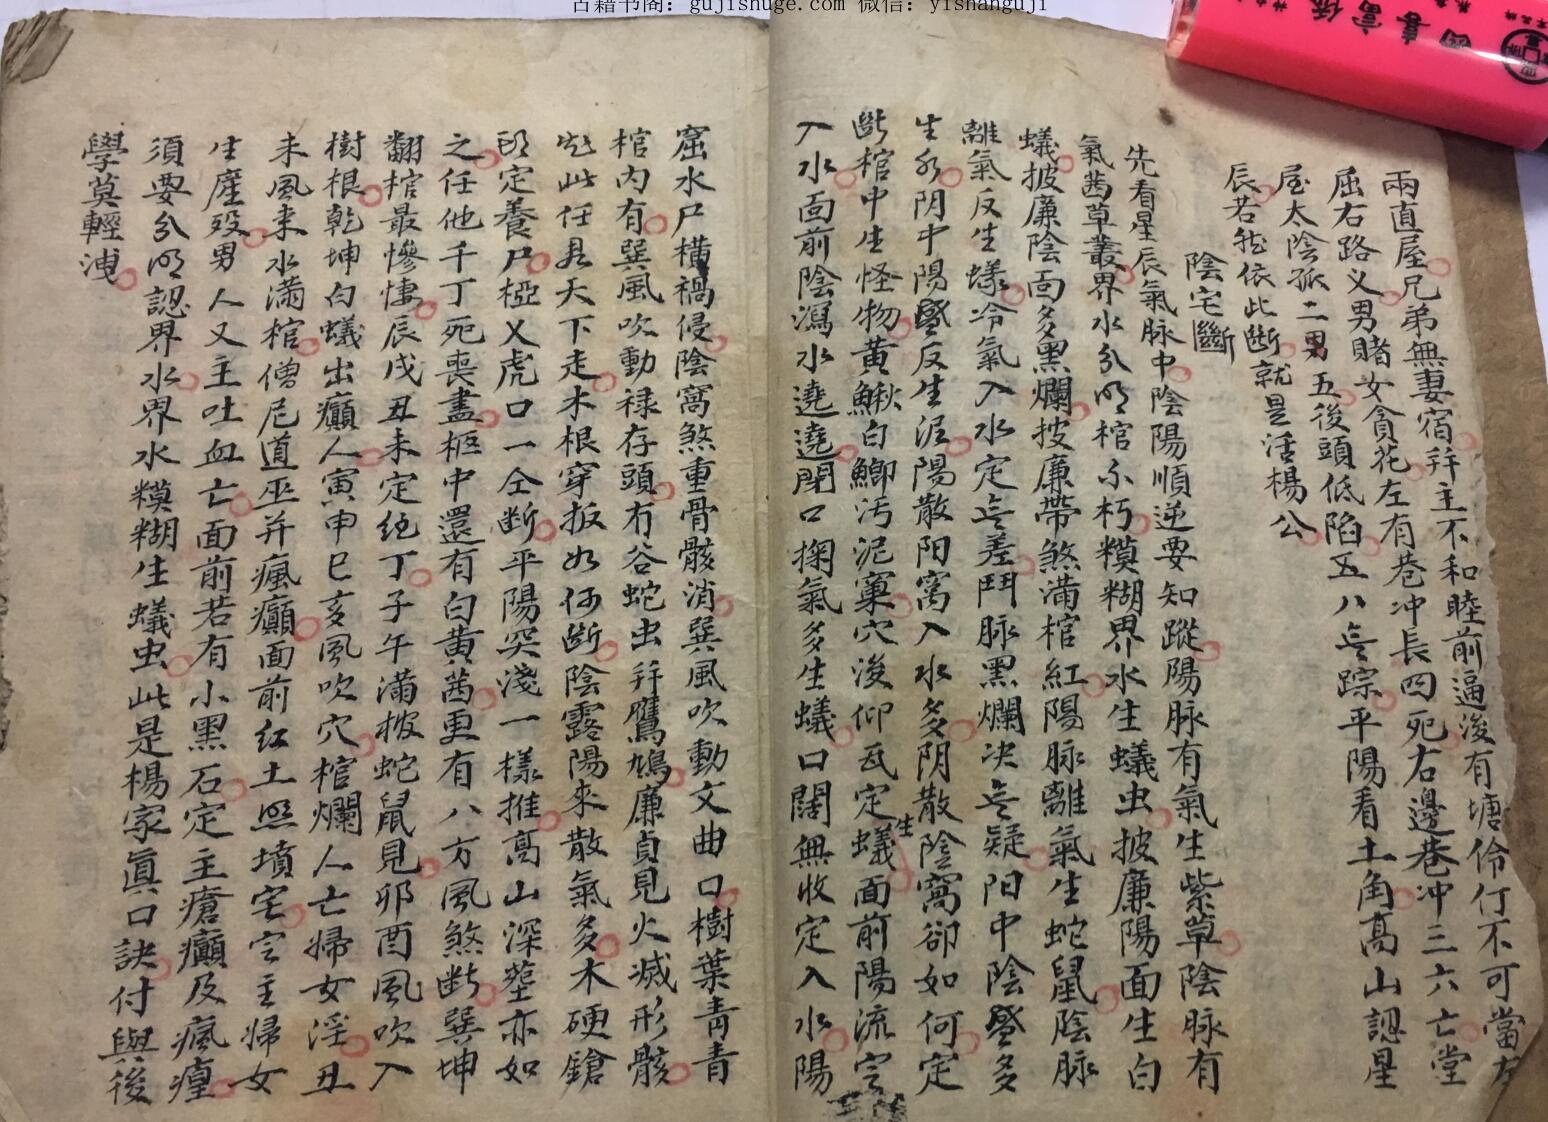 古籍书阁：gujishuge.com 微信：yishanguji
兩直屋兄弟無妻宿并主不和睦前逼後有塘伶仃不可當左
屈右路义男賭女貪花左有巷冲長四死右邊巷冲三六亡堂
屋太陰孤二男五後頭低陷五八無踪平陽看土角髙山認星
辰若能依此断就是活楊公
陰宅斷
先看星辰氣脉中陰陽順逆要知蹤陽脉有氣生紫草陰脉有
氣茜草叢界水分明棺不朽糢糊界水生蟻虫披廉陽面生白
蟻披廉陰面多黑爛披廉帶煞满棺紅陽脉離氣生蛇鼠陰脉
離氣反生蟻冷氣入水定無差鬥脉黑爛决無疑阳中陰盛多
生水阴中陽盛反生泥陽散阳窩入水多阴散陰窩卻如何定
斷棺中生怪物黄鰍白鰤汚泥窠穴後仰瓦定生蟻面前陽流定
入水面前陰瀉水遶遶閗口掬氣多生蟻口闊無收定入水陽
窟水尸横禍侵陰窩煞重骨骸消巽風吹動文曲口樹葉青青
棺内有巽風吹動禄存頭冇谷蛇虫并鷹鳩廉貞見火减形骸
此任君天下走木根穿扳如何斷陰露陽來散氣多木硬鎗
定養尸极义虎口一仝断平陽突淺一樣推高山深塟亦如
之任他千丁死喪盡柩中還有白黄茜更有八方風煞斷巽坤
翻棺最慘悽辰戌丑未定絶丁子午满棺蛇鼠見卯酉風吹入
樹根乾坤白蟻出癲人寅申巳亥風吹穴棺爛人亡婦女淫丑
未風来水满棺僧尼道巫并瘋癲面前红土照墳宅定主婦女
生産殁男人又主吐血亡面前若有小黑石定主瘡癲及瘋瘇
須要分明認界水界水糢糊生蟻虫此是楊家眞口訣付與後
學莫輕洩